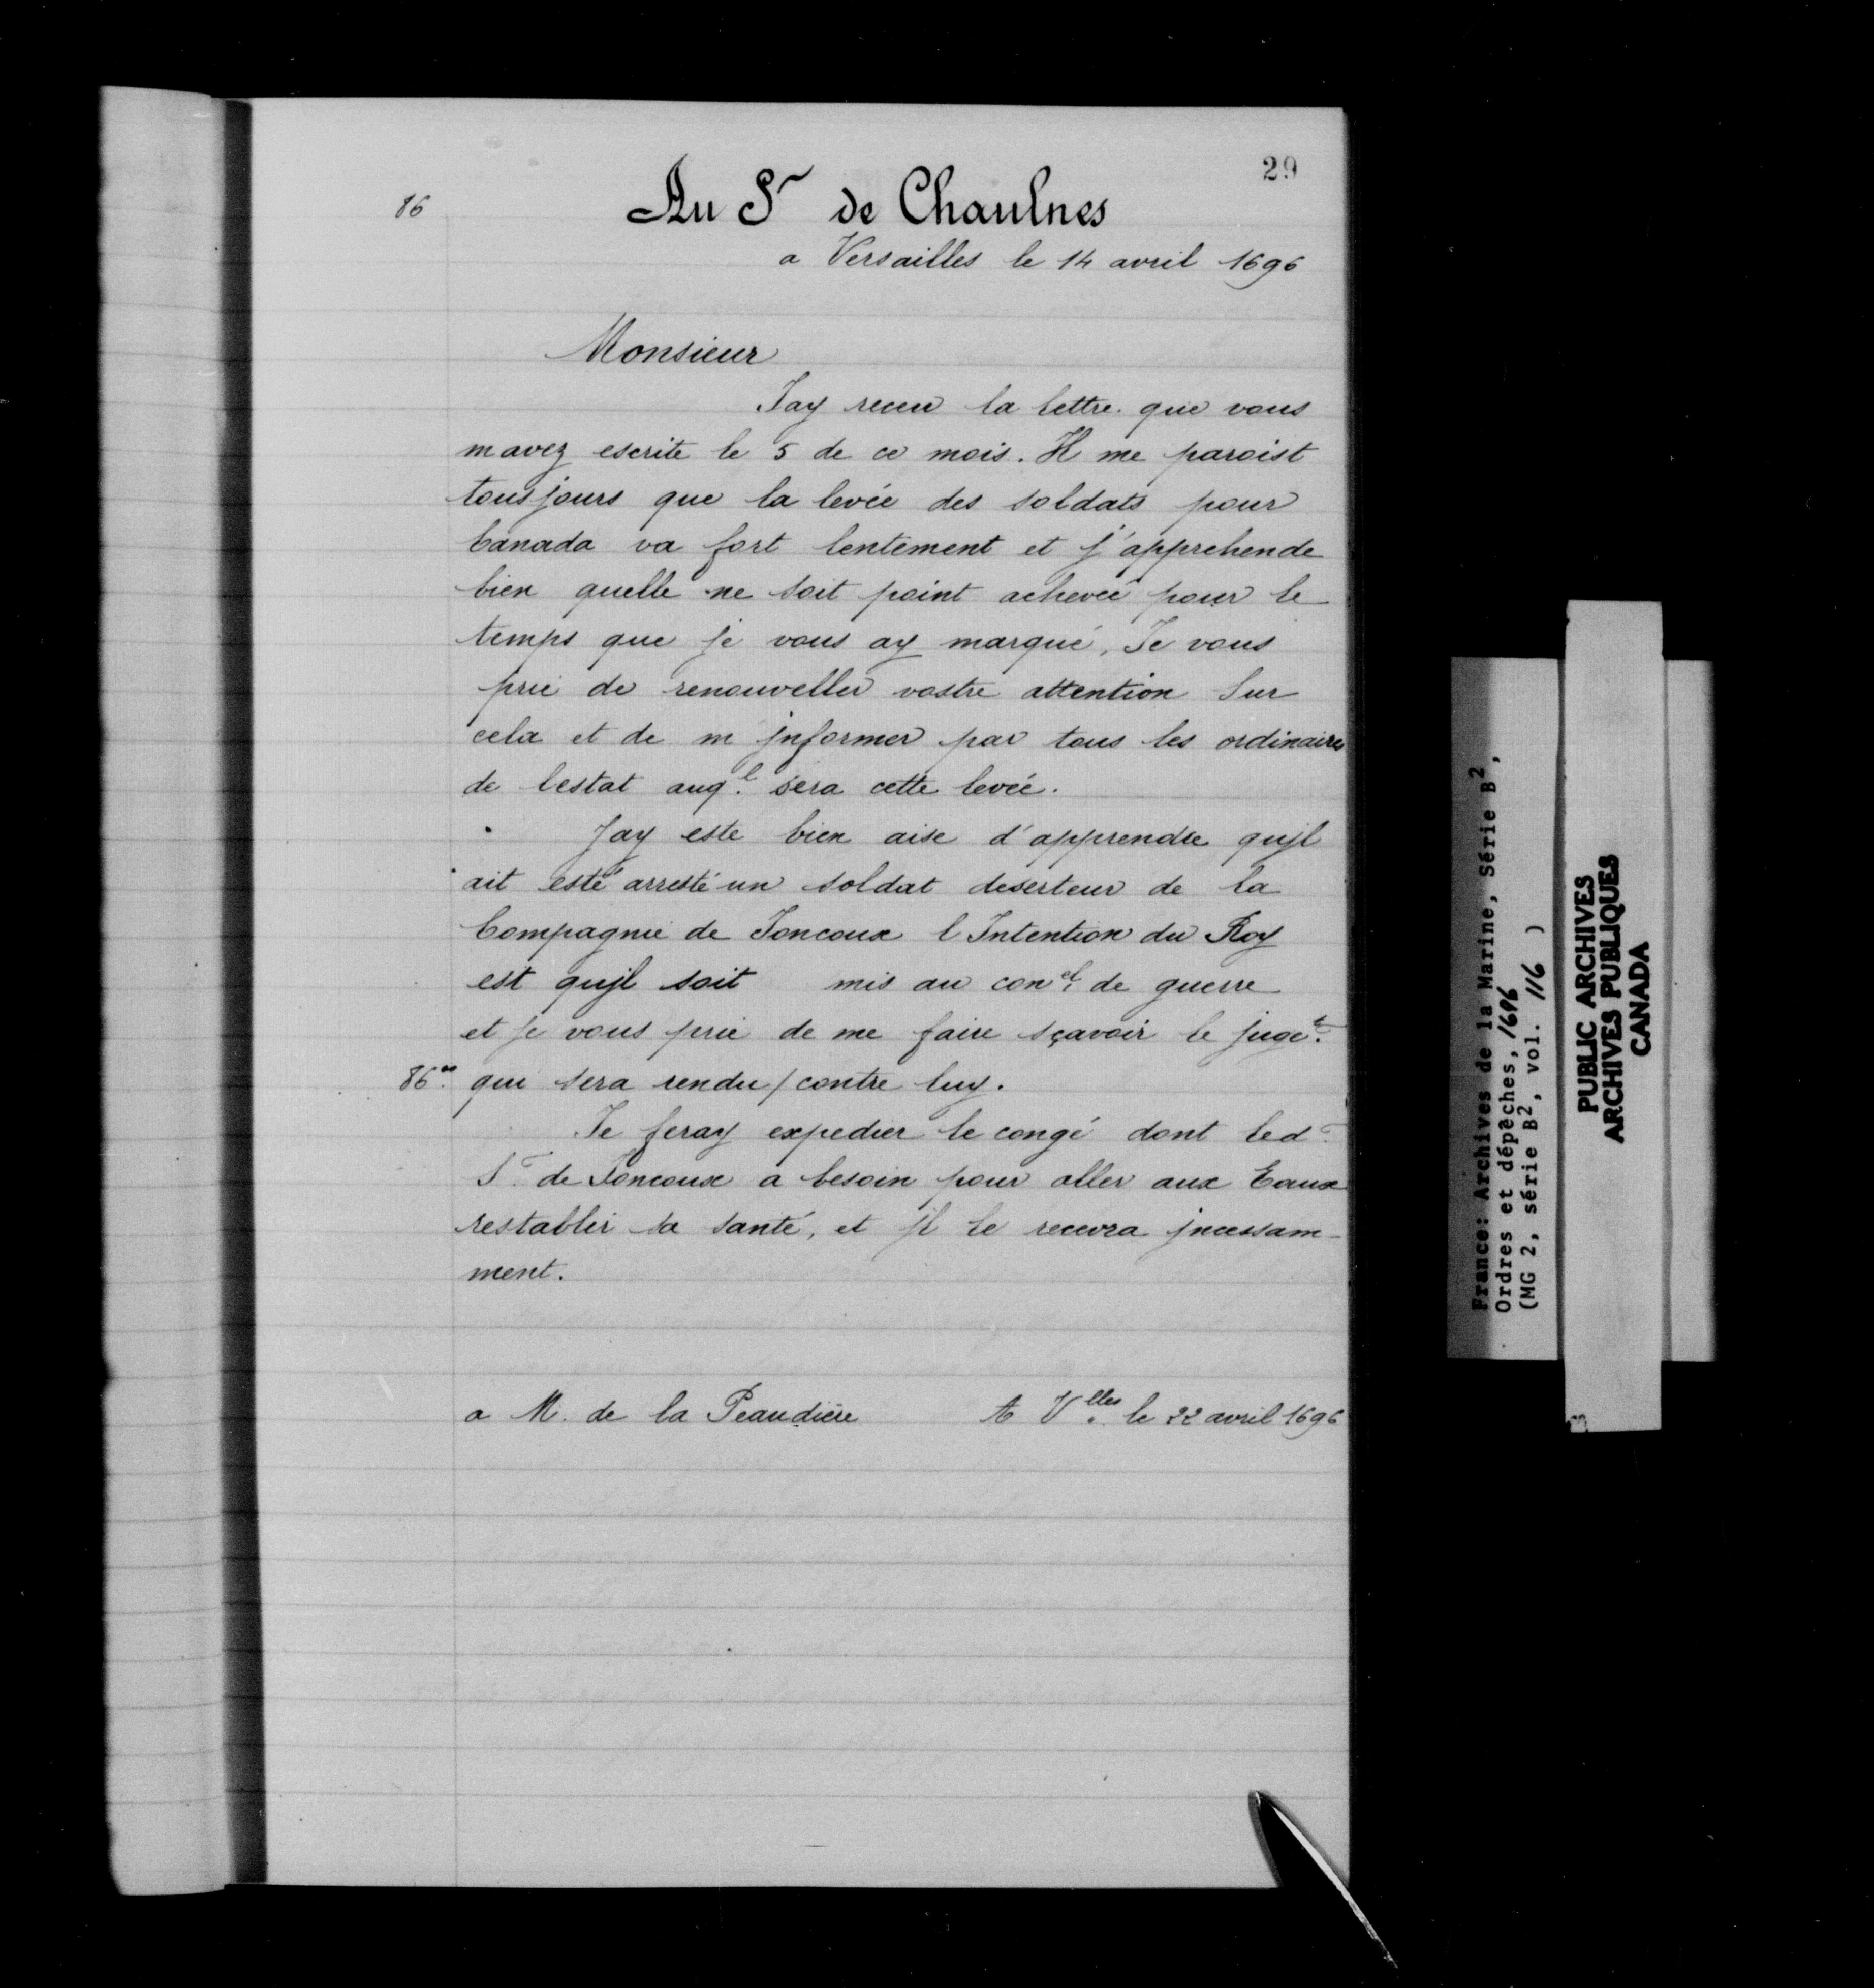 29
86
Au Sr de Chaulnes
a Versailles le 14 avril 1696
Monsieur
Jay receu la lettre que vous
mavez escrite le 5 de ce mois. Il me paroist
tousjours que la levée des soldats pour
Canada va fort lentement et j'apprehende
bien quelle ne soit point achevée pour le
temps que je vous ay marqué, Je vous
prie de renouveller vostre attention Sur
cela et de m jnformer par tous les ordinaires
de lestat auql. sera cette levée.
Jay esté bien aise d'apprendre qujl
ait esté arresté un soldat deserteur de la
Compagnie de Joncoux l Intention du Roy
est qujl soit mis au conel. de guerre
et je vous prie de me faire sçavoir le juget.
86vo. qui sera rendu / contre luy.
Je feray expedier le congé dont led.
Sr. de Joncoux a besoin pour aller aux Eaux
restablir sa santé, et jl le recevra jncessam-
ment.
a M. de la Peaudiere A Vlles. le 22 avril 1696
France: Archives de la Marine, Série B2,
Ordres et dépêches, 1696
(MG 2, série B2, vol. 116 )
PUBLIC ARCHIVES
ARCHIVES PUBLIQUES
CANADA